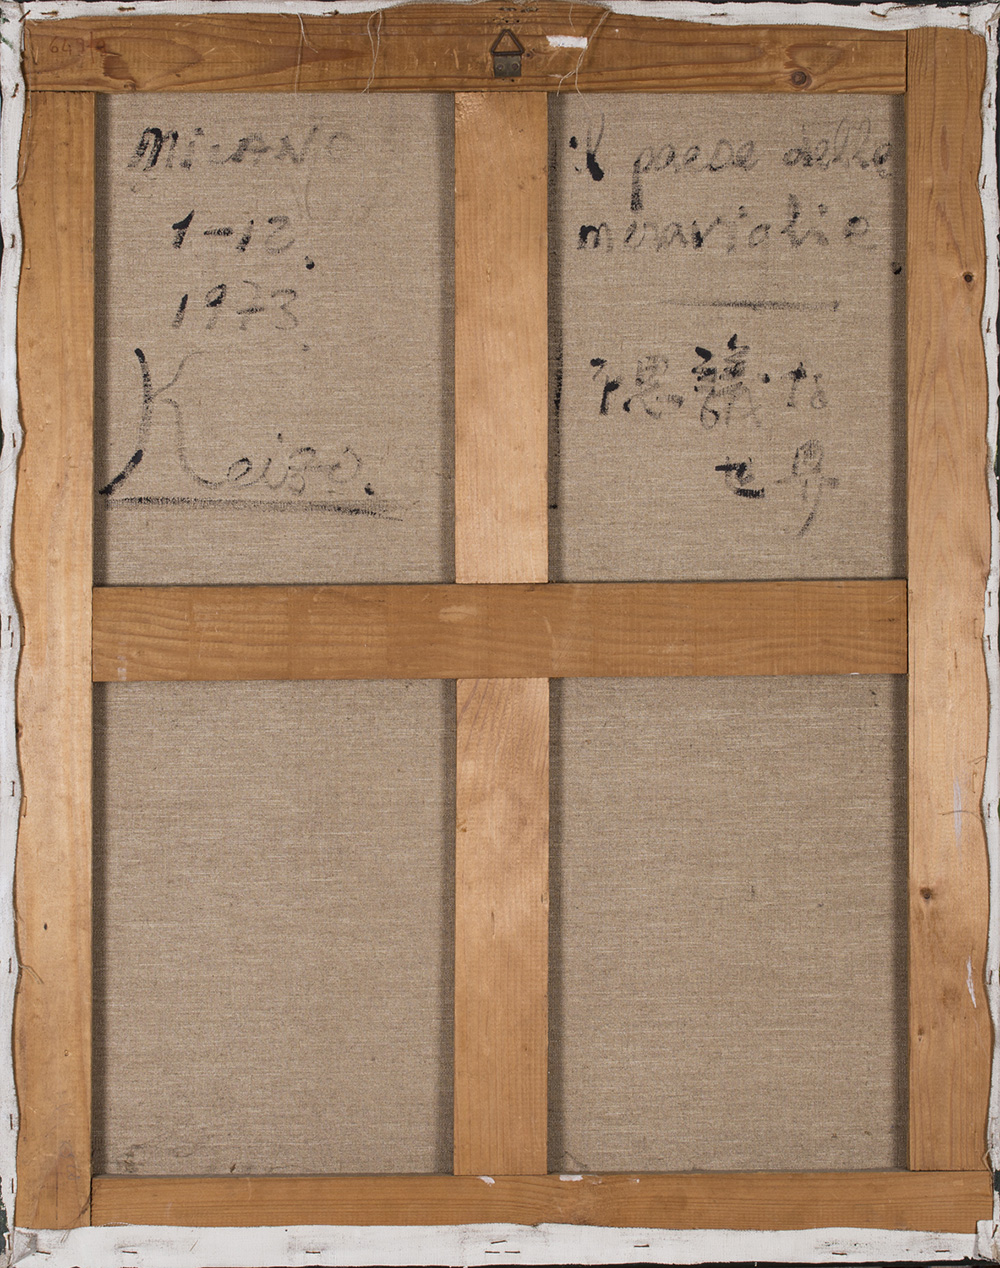 649
MILANO
1-12.
1973.
Keizo.
il paese delle
meraviglie
不思議な
世界